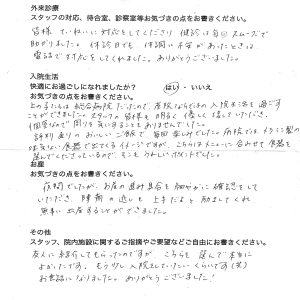 外来診療
スタッフの対応、待合室、診察室等お気づきの点をお書きください。
皆様 ていねいに対応をしてくださり、健診は毎回スムーズで
助かりました。休診日でも 体調に不安があったときは、
電話で対応をしてくれました。ありがとうございました。
入院生活
快適にお過ごしになれましたか？ はい・いいえ
お気づきの点をお書きください。
上の子たちは総合病院だったので、産院ならではの入院生活を過ごす
ことができました。スタッフの皆様も 明るく 優しく 接していただき、
個室なので周りを気にすることもありませんでした。
評判通りの おいしいご飯で、毎回楽しみでした。病院では メラミン製の
味気ない食器で出てくるイメージですが、こちらはメニューに合わせて食器を
選んでくださっているので、そこも うれしいポイントでした。
お産
お気づきの点をお書きください。
夜間でしたが、お産の進み具合を細やかに確認をして
いただき、陣痛の逃しも 上手だよと 励ましてくれ、
無事に出産することができました。
その他
スタッフ、院内施設に関するご指摘やご要望などご自由にお書きください。
友人に紹介してもらったのですが、こちらを 選んで 本当に
よかったです。もう少し 入院をしていたいくらいです(笑)
お世話になりました。ありがとうございました！